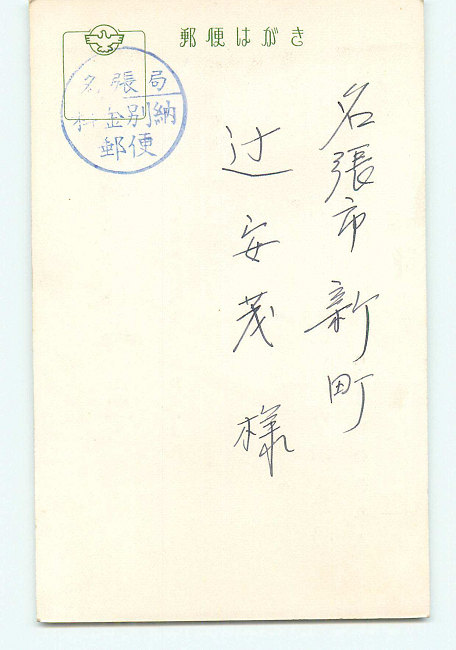 郵便はがき
名張局
料金別納
郵便
名張市新町
辻安茂様